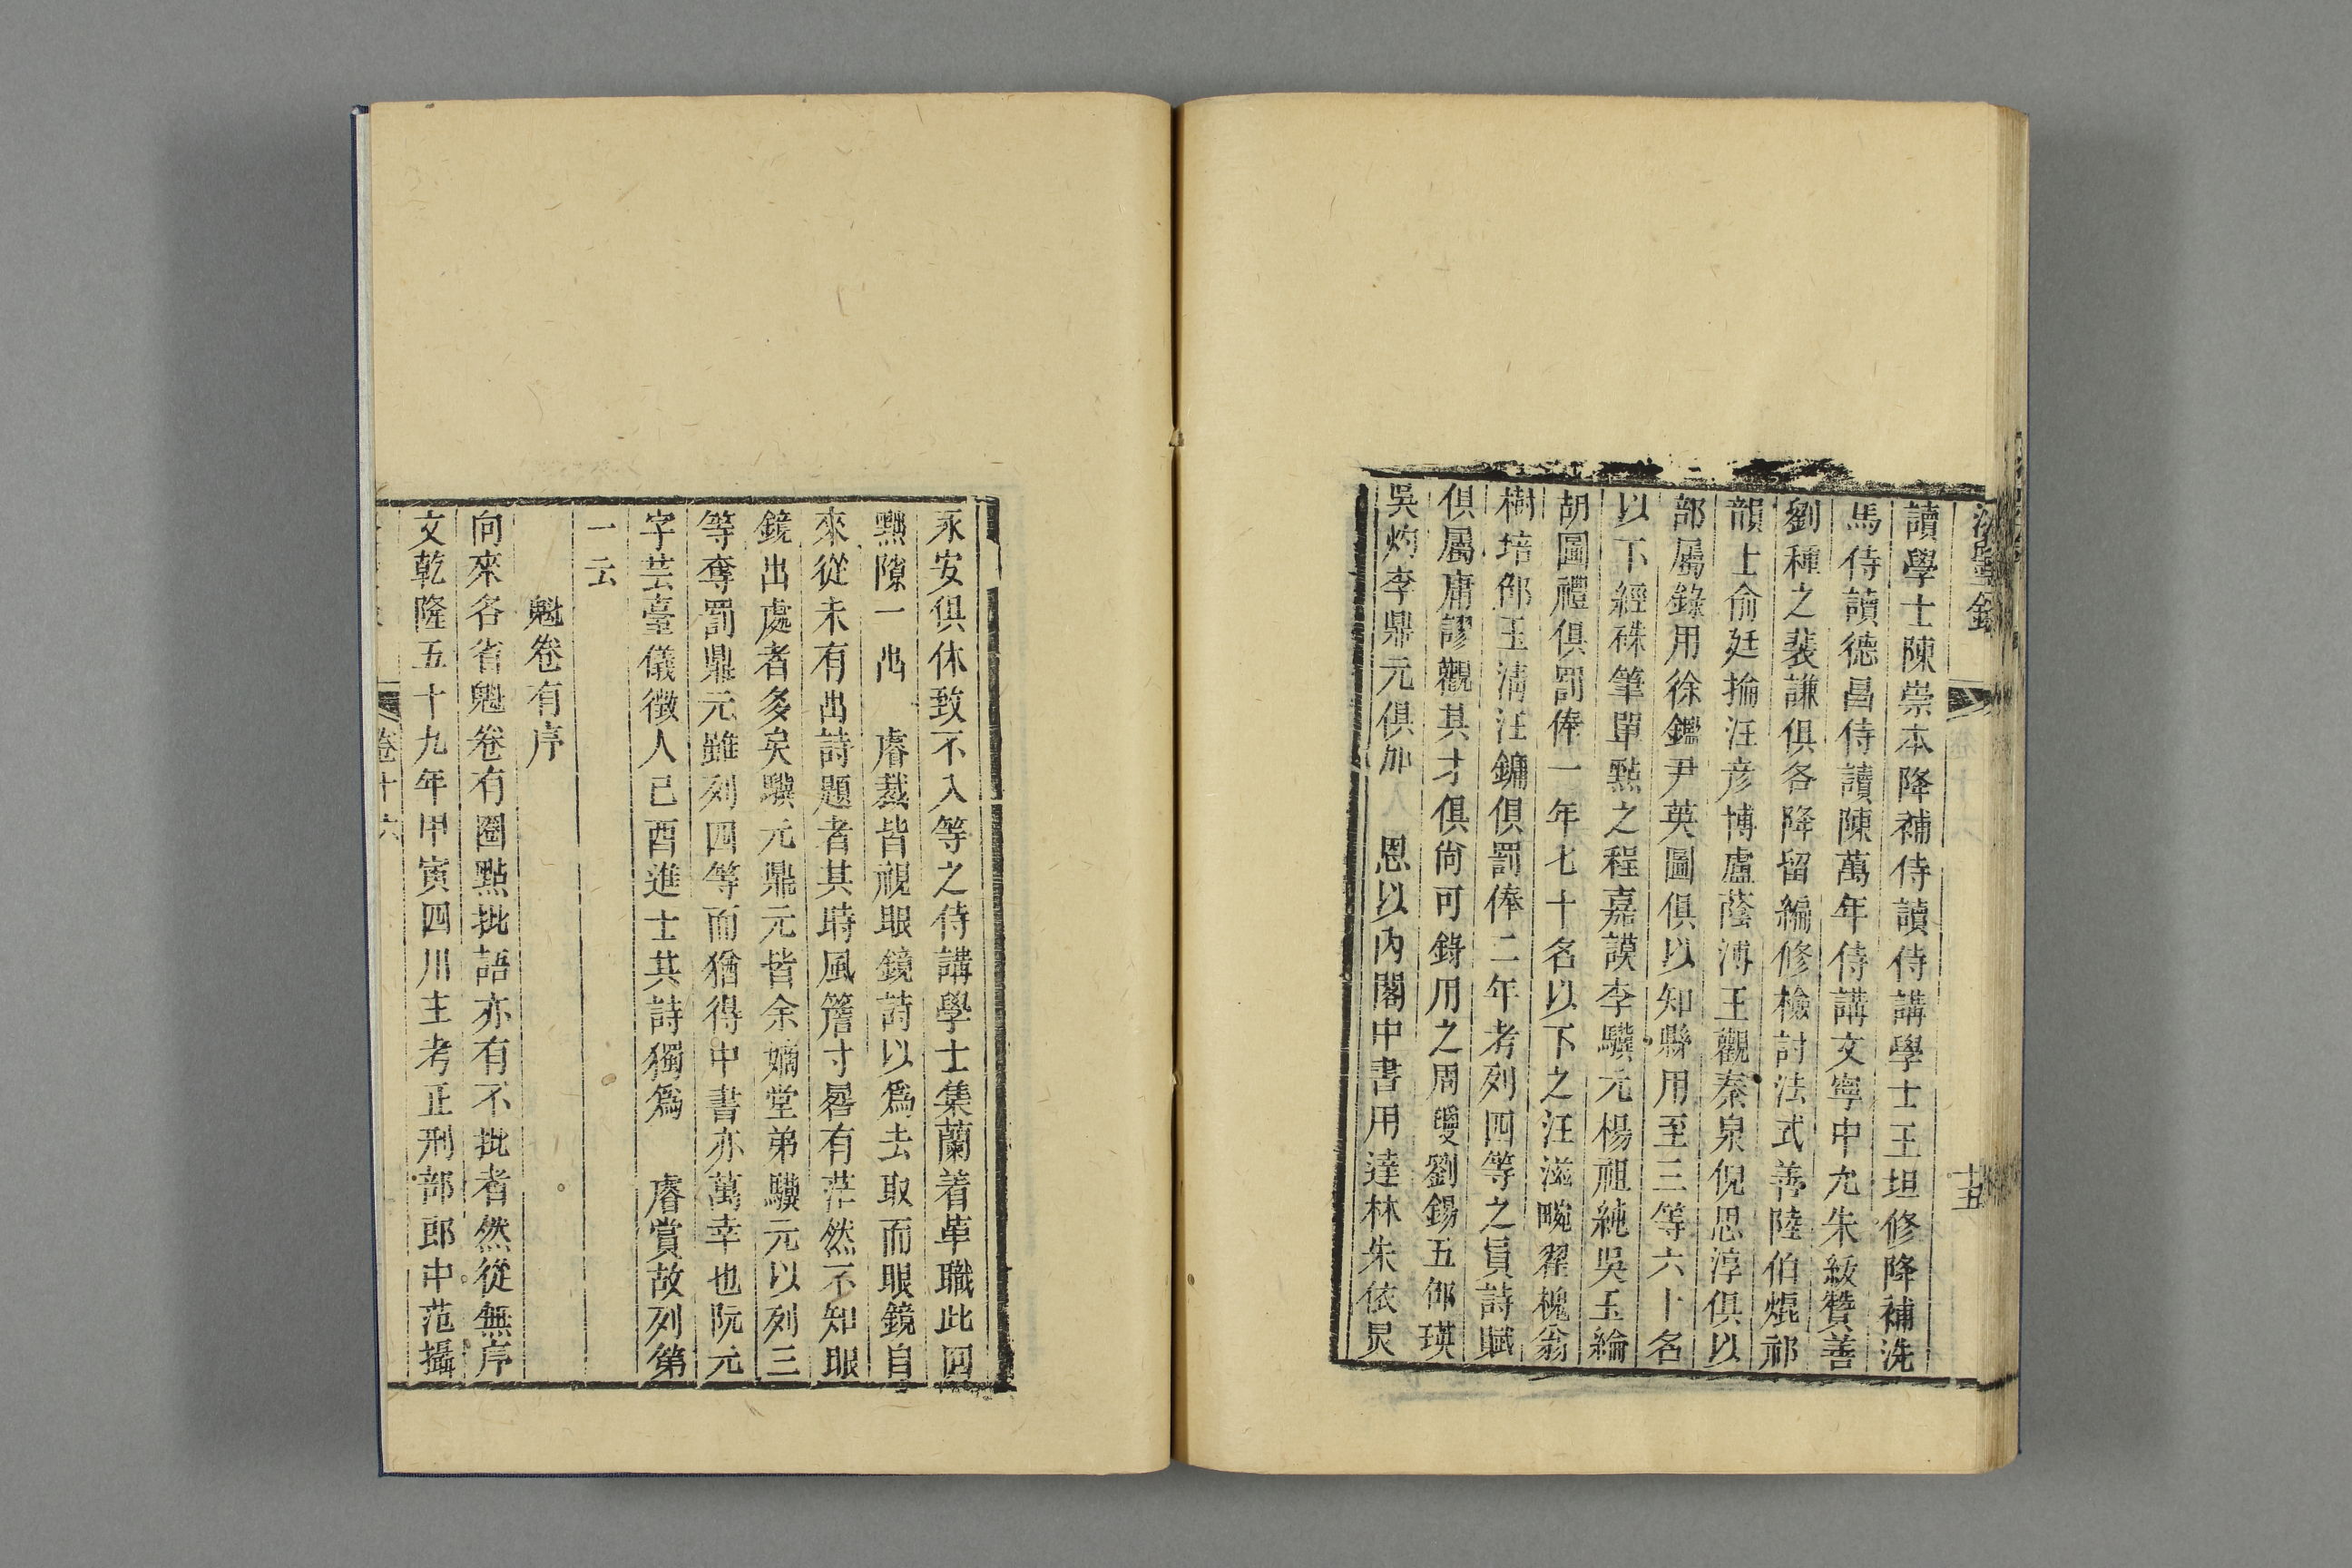 淡墨錄
十五
讀學士陳崇本降補侍讀侍講學士王坦修降補洗
馬侍讀德昌侍讀陳萬年侍講文寧中允朱紱贊善
劉種之裴謙俱各降留編修檢討法式善陸伯焜祁
韻士俞廷掄汪彥博盧蔭溥王觀秦泉倪思淳俱以
部屬錄用徐鑑尹英圖俱以知縣用至三等六十名
以下經硃筆單點之程嘉謨李驥元楊祖純吳玉綸
胡圖禮俱罰俸一年七十名以下之汪滋畹翟槐翁
樹培邵玉清汪鏞俱罰俸二年考列四等之員詩賦
俱屬庸謬觀其才俱尚可錄用之周燮劉錫五邵瑛
吳灼李鼎元俱加 恩以內閣中書用達林朱依炅
永安俱休致不入等之侍講學士集蘭着革職此四
點隙一出 睿裁皆視眼鏡詩以為去取而眼鏡自
來從未有出詩題者其時風簷寸晷有茫然不知眼
鏡出處者多矣驥元鼎元皆余嫡堂弟驥元以列三
等奪罰鼎元雖列四等而猶得中書亦萬幸也阮元
字芸臺儀徵人己酉進士其詩獨為 睿賞故列第
一云
魁卷有序
向來各省魁卷有圈點批語亦有不批者然從無序
文乾隆五十九年甲寅四川主考正刑部郎中范攝
卷十六